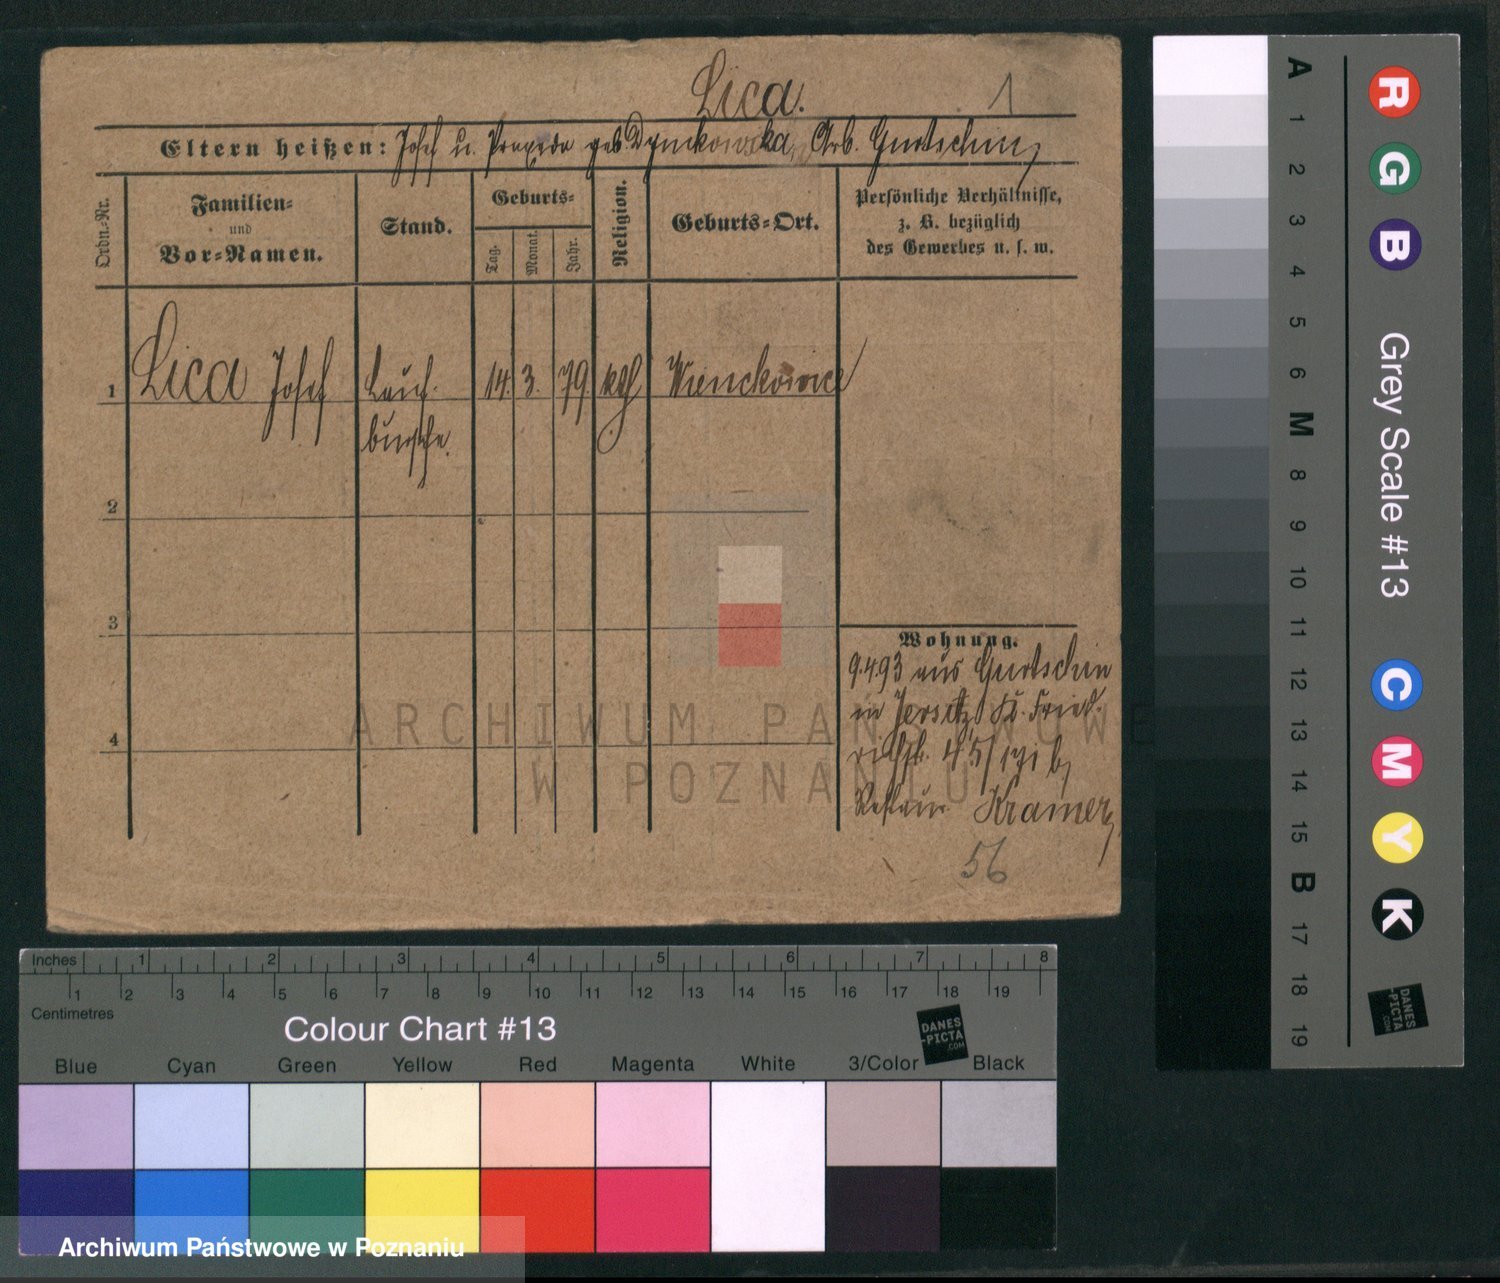 Lica. 1
Eltern heißen: Josef u. Praxeda geb. Dynikowska, Arb. Gurtschin,
Ordn.-Nr.
Familien-
und
Vor-Namen.
Stand.
Geburts-
Tag.
Monat.
Jahr.
Religion.
Geburts-Ort.
Persönliche Verhältnisse,
z. B. bezüglich
des Gewerbes u. s. w.
1 Lica Josef Lauf- 14. 3. 79 kth Wienckowice
bursche.
2
3
4
Wohnung.
9.4.93 aus Gurtschin
in Jersitz Kl. Fried-
richstr. 45/ b/
Restaur. Kramer,
56
ARCHIWUM PAŃSTWOWE
W POZNANIU
Inches 1 2 3 4 5 6 7 8
1 2 3 4 5 6 7 8 9 10 11 12 13 14 15 16 17 18 19
Centimetres
Colour Chart #13
DANES
-PICTA
.COM
Blue Cyan Green Yellow Red Magenta White 3/Color Black
Archiwum Państwowe w Poznaniu
A 1 2 3 4 5 6 M 8 9 10 11 12 13 14 15 B 17 18 19
R G B
Grey Scale #13
C M Y K
DANES
-PICTA
.COM